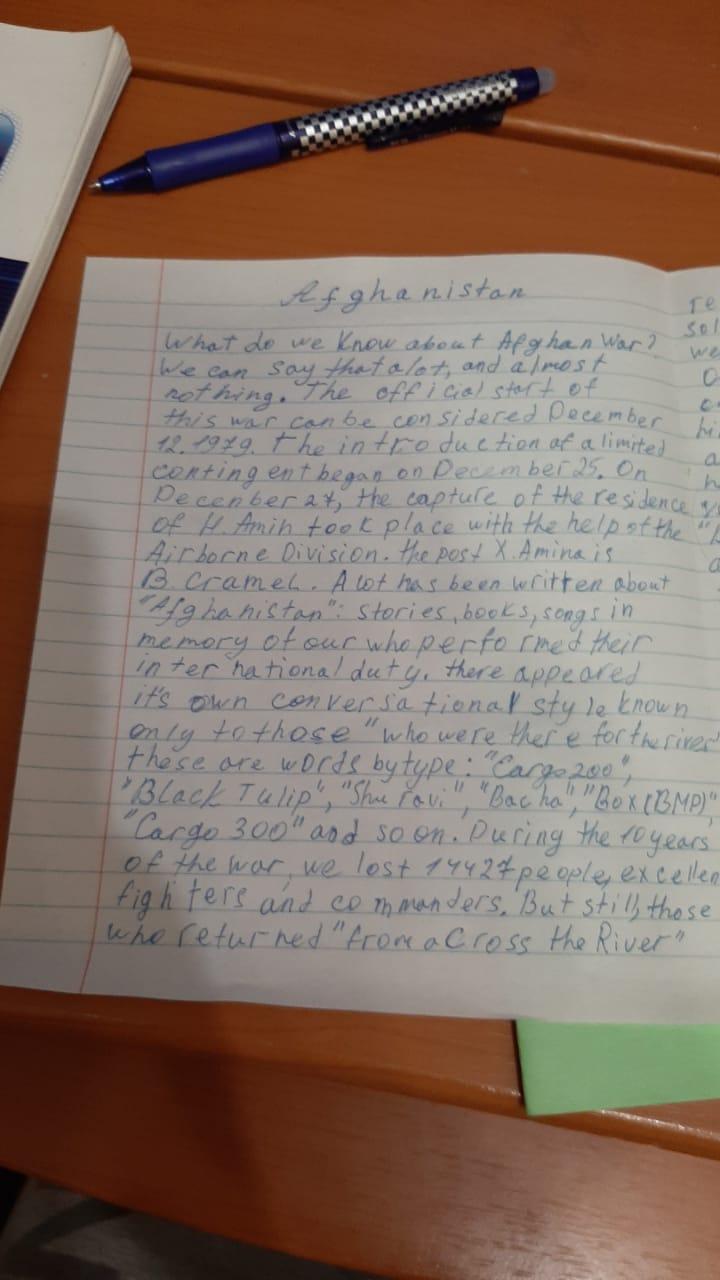 Afghanistan
What do we know about Afghan War?
We can say that alot, and almost
nothing. The official start of
this war can be considered December
12.1979. the introduction of a limited
contingent began on December 25. On
December 27, the capture of the residence
of H. Amin took place with the help of the
Airborne Division. the post X. Amina is
B. Cramel. A lot has been written about
"Afghanistan": stories, books, songs in
memory of our who performed their
international duty. there appeared
it's own conversational style known
only to those "who were there for the river"
these are words by type: "Cargo 200",
"Black Tulip", "Shu ravi", "Bacha", "Box (BMP)",
"Cargo 300" and so on. During the 10 years
of the war, we lost 14427 people, excellen
fighters and commanders. But still, those
who returned "from across the River"
re
sol
we